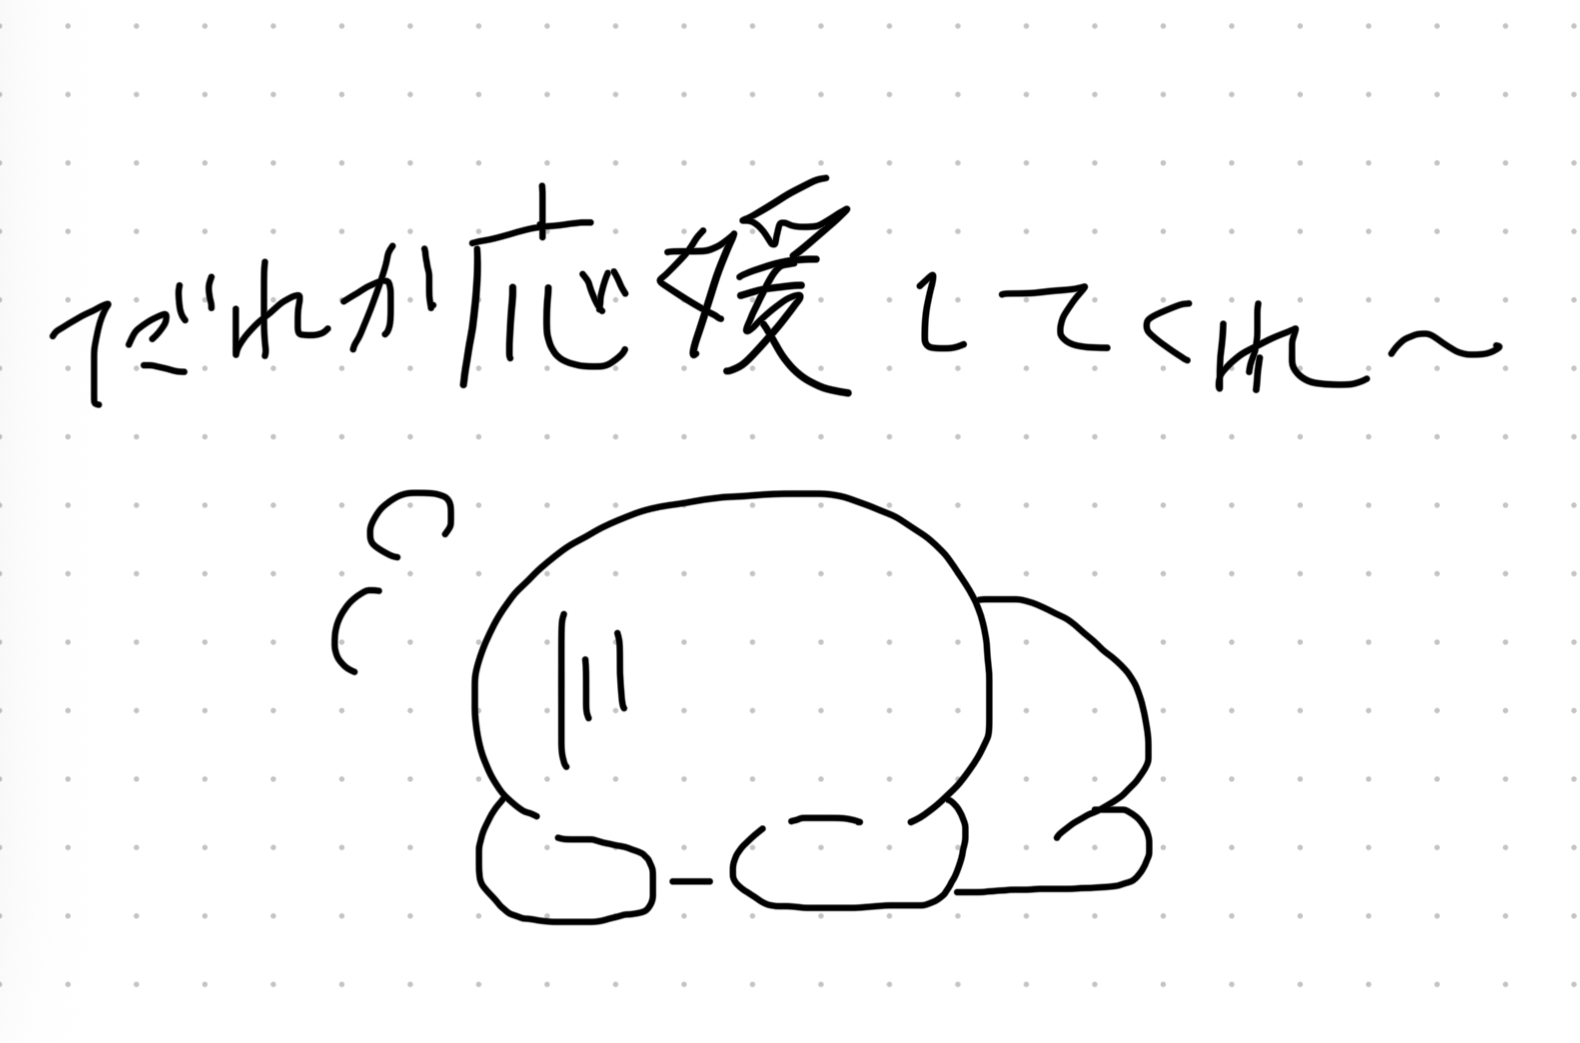 だれか応媛してくれ～